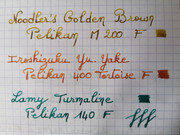 Noodler's Golden Brown
Pelikan M 200 F
Iroshizuku Yu. Yake
Pelikan 400 Tortoise F
Lamy Turmaline
Pelikan 140 F